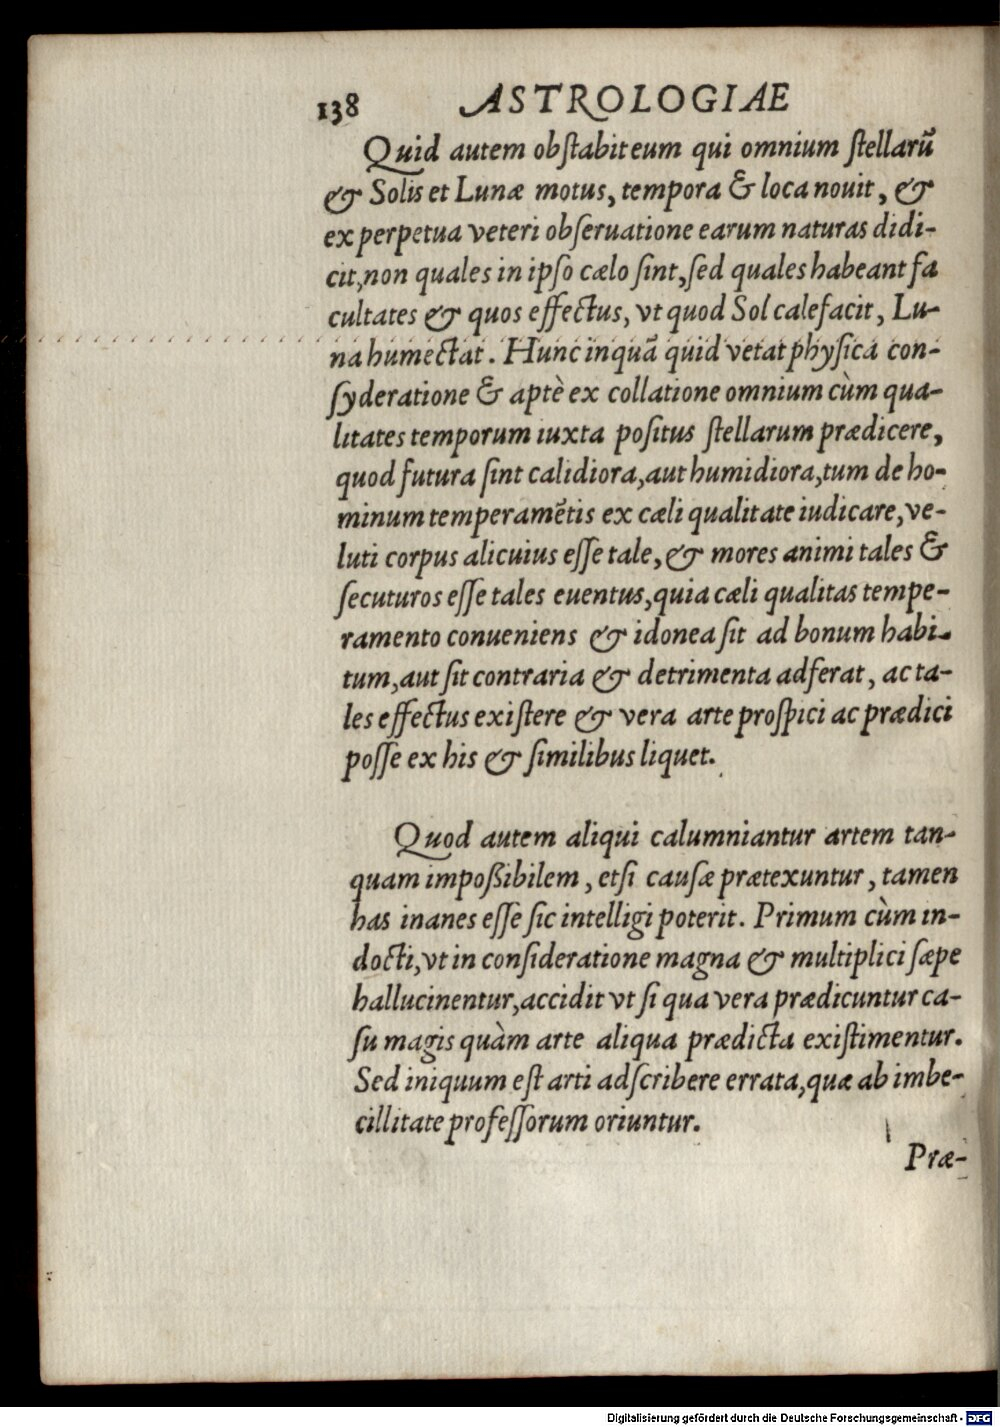 138 ASTROLOGIAE
Quid autem obſtabit eum qui omnium ſtellarũ
& Solis et Lunæ motus, tempora & loca nouit, &
ex perpetua veteri obſeruatione earum naturas didi-
cit, non quales in ipſo cælo ſint, ſed quales habeant fa
cultates & quos effectus, vt quod Sol calefacit, Lu-
na humectat. Hunc inquã quid vetat phyſica con-
ſyderatione & aptè ex collatione omnium cùm qua-
litates temporum iuxta poſitus ſtellarum prædicere,
quod futura ſint calidiora, aut humidiora, tum de ho-
minum temperamẽtis ex cæli qualitate iudicare, ve-
luti corpus alicuius eſſe tale, & mores animi tales &
ſecuturos eſſe tales euentus, quia cæli qualitas tempe-
ramento conueniens & idonea ſit ad bonum habi-
tum, aut ſit contraria & detrimenta adferat, ac ta-
les effectus exiſtere & vera arte proſpici ac prædici
poſſe ex his & ſimilibus liquet.
Quod autem aliqui calumniantur artem tan-
quam impoßibilem, etſi cauſæ prætexuntur, tamen
has inanes eſſe ſic intelligi poterit. Primum cùm in-
docti, vt in conſideratione magna & multiplici ſæpe
hallucinentur, accidit vt ſi qua vera prædicuntur ca-
ſu magis quàm arte aliqua prædicta exiſtimentur.
Sed iniquum eſt arti adſcribere errata, quæ ab imbe-
cillitate profeſſorum oriuntur.
Præ-
Digitalisierung gefördert durch die Deutsche Forschungsgemeinschaft - DFG